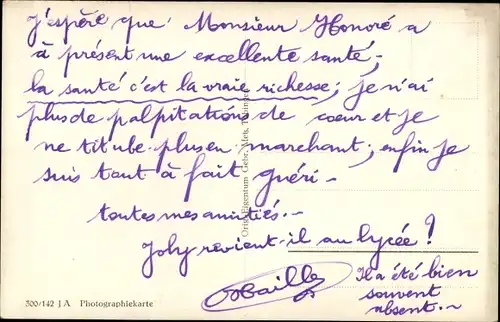 J'espère que Monsieur Honoré a
à présent une excellente santé,
la santé c'est la vraie richesse; je n'ai
plus de palpitations de cœur et je
ne titube plus en marchant; enfin je
suis tout à fait guéri -
toutes mes amitiés. -
Joly revient-il au lycée?
Il a été bien
souvent
absent. -
Maille
Orig. Eigentum Gebr. Metz, Tübingen
500/142 J A Photographiekarte